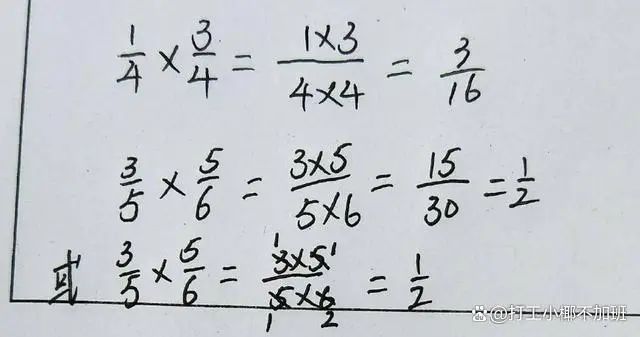 1/4 × 3/4 = 1×3/4×4 = 3/16
3/5 × 5/6 = 3×5/5×6 = 15/30 = 1/2
或 3/5 × 5/6 = 3×5/5×6 = 1/2
1 1
1 2
@打工小椰不加班